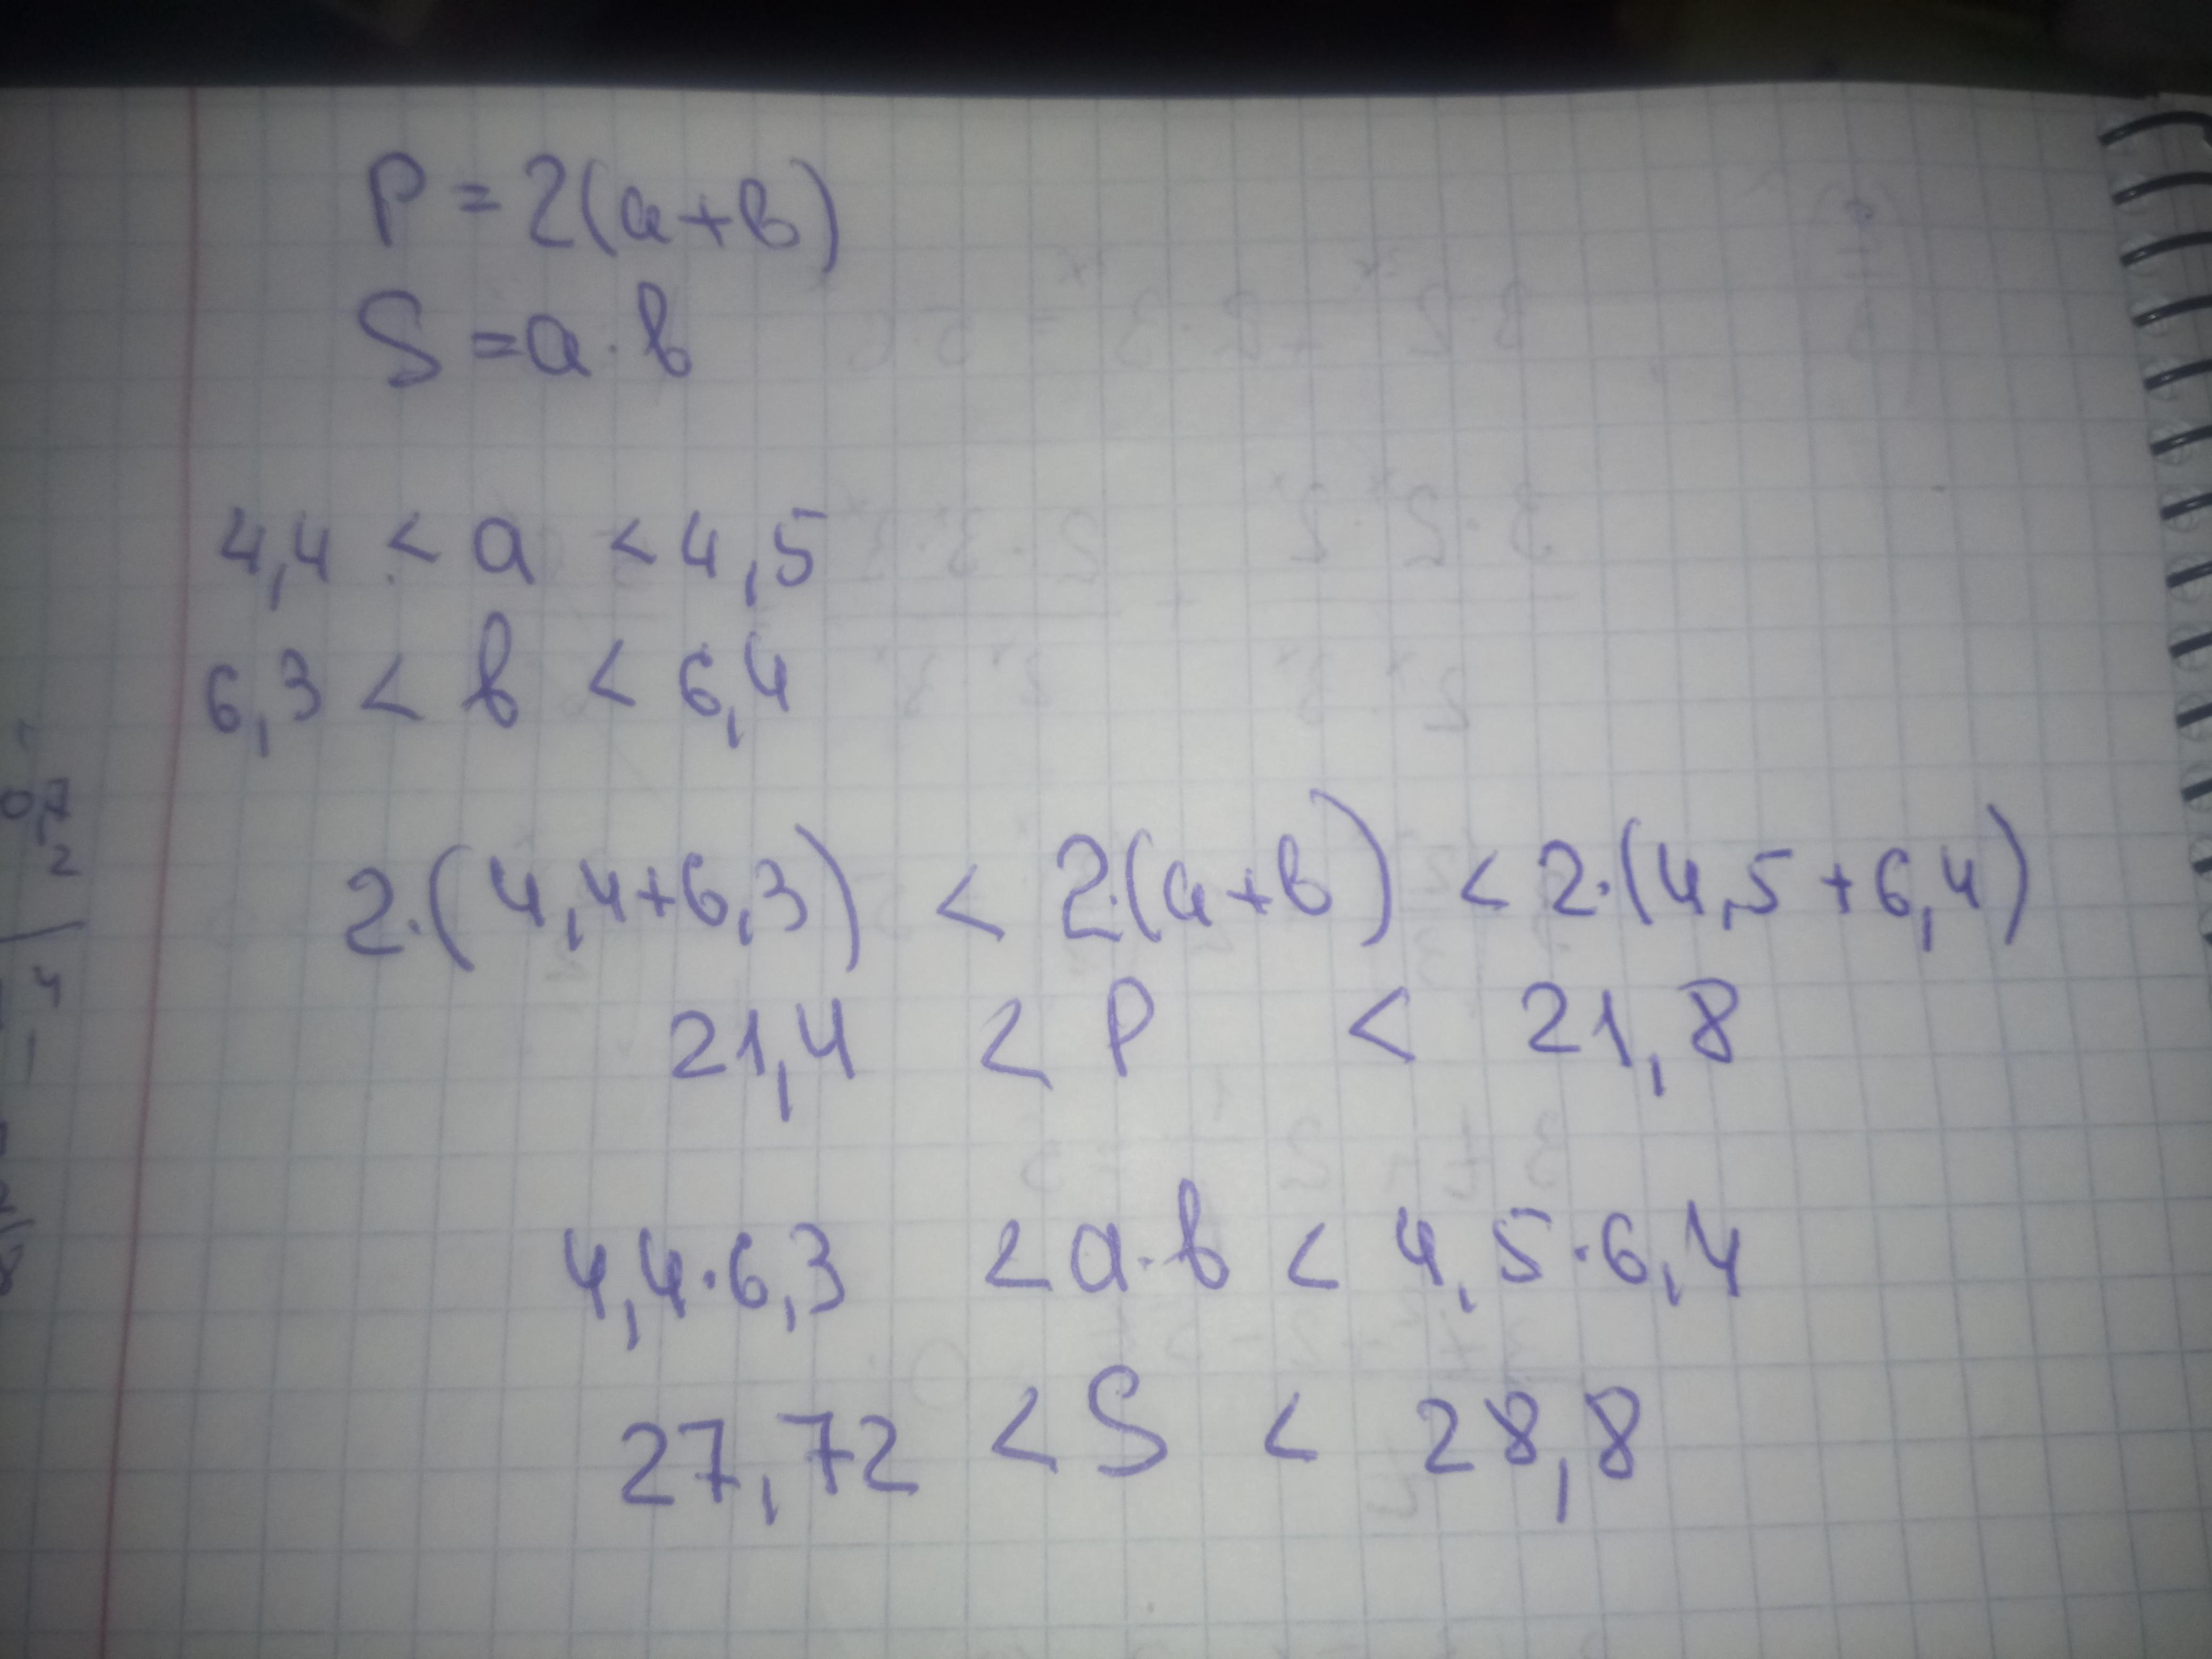 P = 2(a+b)
S = a · b
4,4 < a < 4,5
6,3 < b < 6,4
2·(4,4+6,3) < 2·(a+b) < 2·(4,5+6,4)
21,4 < P < 21,8
4,4·6,3 < a·b < 4,5·6,4
27,72 < S < 28,8